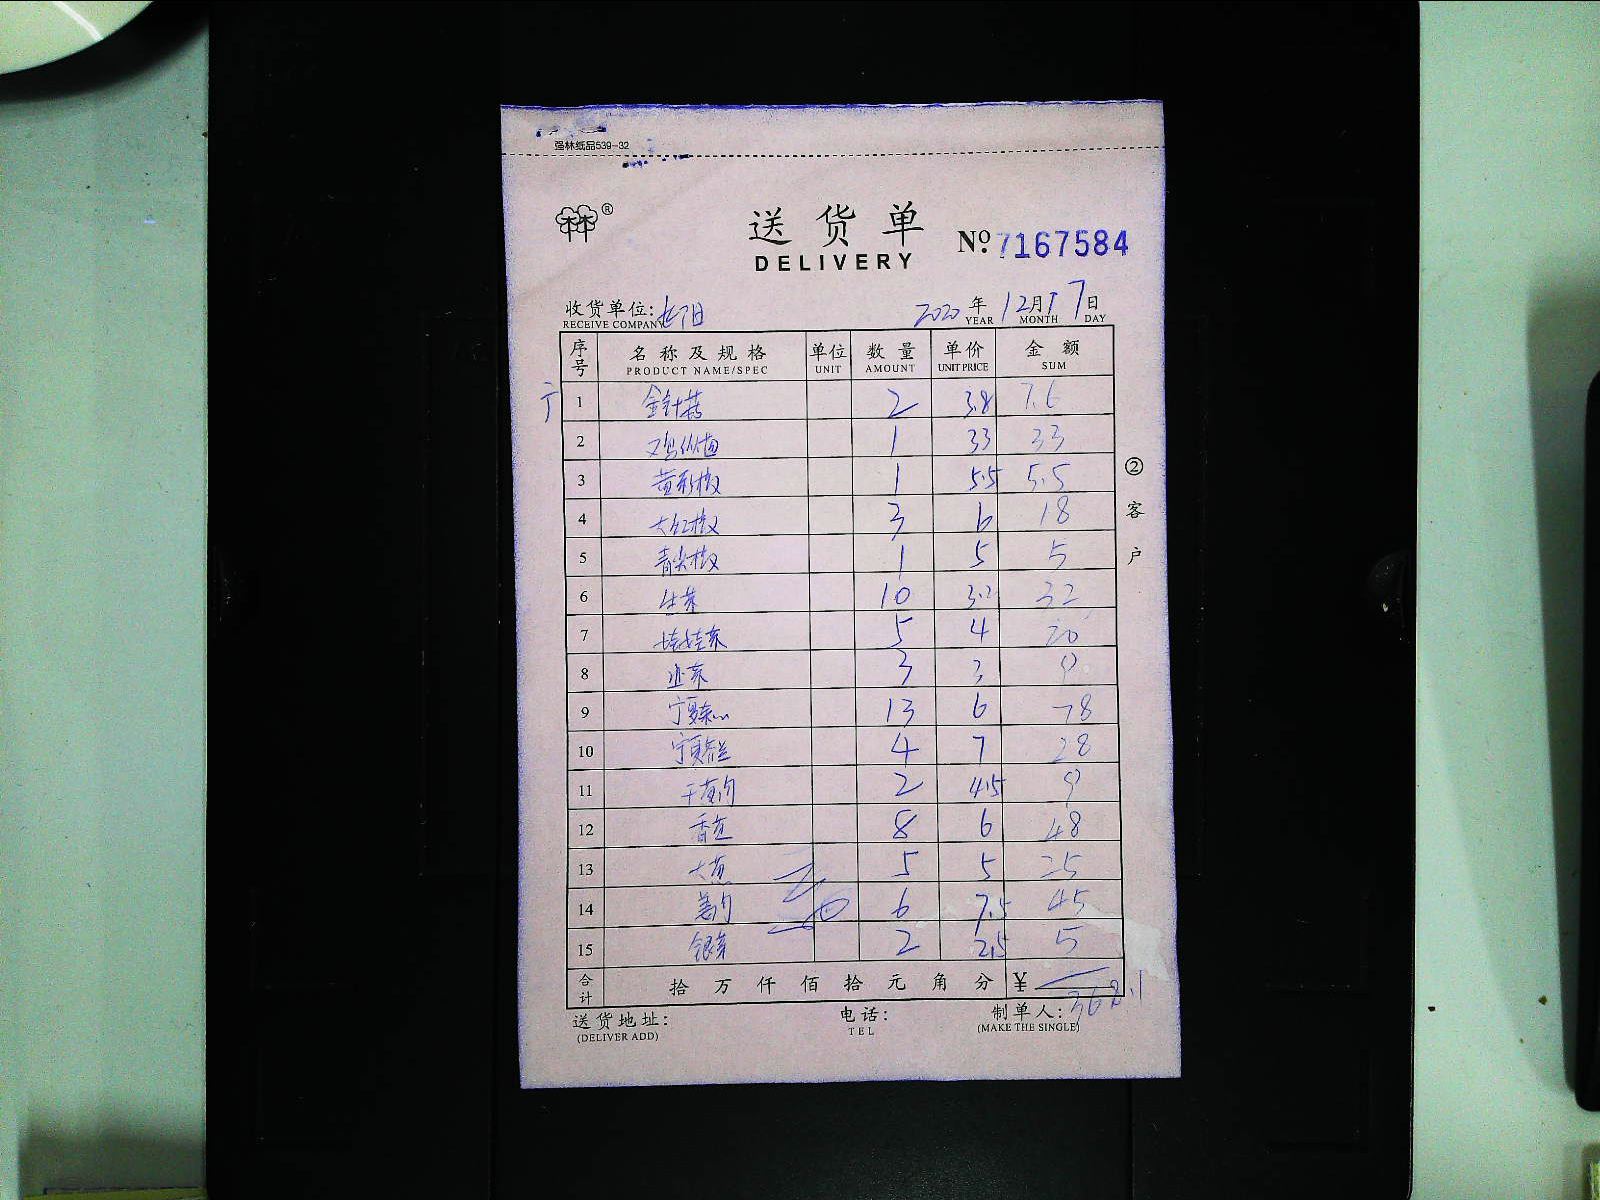 强林纸品539-32
林林®
送货单
DELIVERY
No. 7167584
收货单位:
RECEIVE COMPANY
2020年12月17日
YEAR MONTH DAY
序号 名称及规格 单位 数量 单价 金额
PRODUCT NAME/SPEC UNIT AMOUNT UNIT PRICE SUM
1 金针菇 2 3.8 7.6
2 1 33 33
3 黄彩椒 1 5.5 5.5
4 大红椒 3 6 18
5 青尖椒 1 5 5
6 生菜 10 3.2 32
7 娃娃菜 5 4 20
8 3 3 9
9 宁夏菜心 13 6 78
10 宁夏芥兰 4 7 28
11 干葱肉 2 4.5 9
12 香芭 8 6 48
13 大葱 5 5 25
14 姜肉 6 7.5 45
15 银芽 2 2.5 5
合计 拾 万 仟 佰 拾 元 角 分 ¥ 368.1
②客户
送货地址:
(DELIVER ADD)
电话:
TEL
制单人:
(MAKE THE SINGLE)